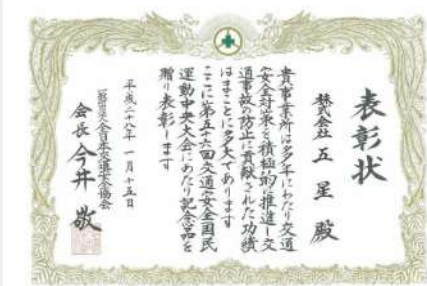 表彰状
株式会社 五星 殿
貴事業所は多年にわたり交通
安全対策を積極的に推進し交
通事故の防止に貢献された功績
はまことに多大であります
ここに第五十六回交通安全国民
運動中央大会にあたり記念品を
贈り表彰します
平成二十八年一月十五日
一般財団法人全日本交通安全協会
会長 今井 敬